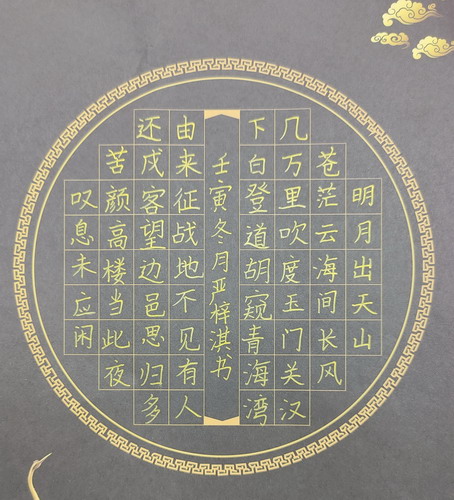 明月出天山
苍茫云海间长风
几万里吹度玉门关汉
下白登道胡窥青海湾
由来征战地不见有人
还戍客望边邑思归多
苦颜高楼当此夜
叹息未应闲
壬寅冬月严梓淇书